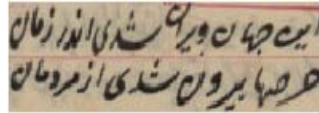 این جهان ویران شدی اندر زمان
حرصها بیرون شدی از مردمان